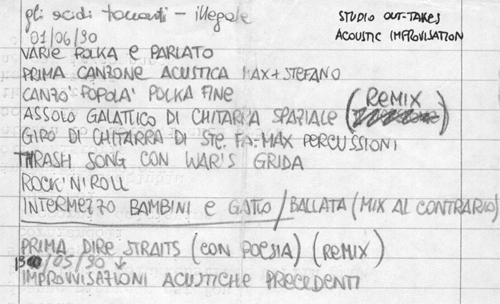 gli acidi tonanti - illegale
STUDIO OUT-TAKES
ACOUSTIC IMPROVISATION
01/06/90
VARIE POLKA e PARLATO
PRIMA CANZONE ACUSTICA MAX+STEFANO
CANZO' POPOLA' POLKA FINE
ASSOLO GALATTICO DI CHITARRA SPAZIALE (REMIX)
GIRO DI CHITARRA DI STE. FA-MAX PERCUSSIONI
THRASH SONG CON WAR'S GRIDA
ROCK'N'ROLL
INTERMEZZO BAMBINI e GATTO/BALLATA (MIX AL CONTRARIO)
PRIMA DIRE STRAITS (CON POESIA) (REMIX)
/05/90 ↓
IMPROVVISAZIONI ACUSTICHE PRECEDENTI